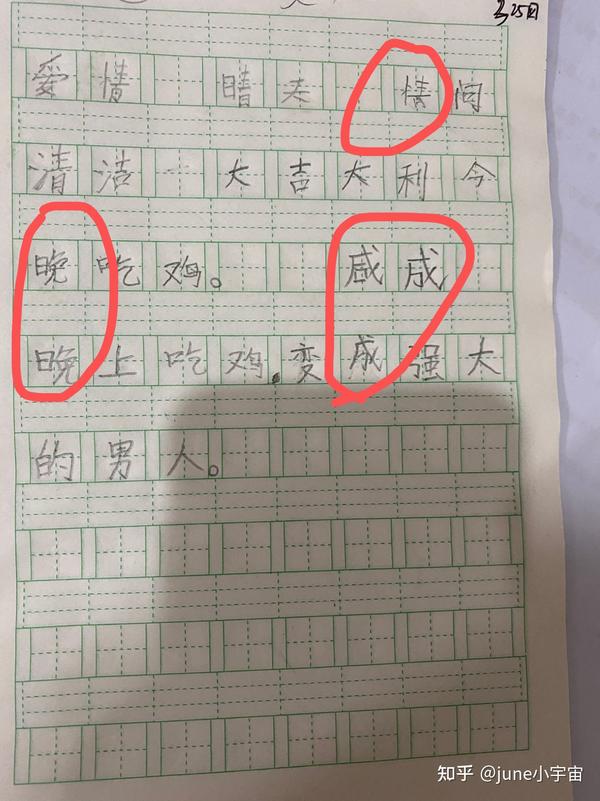 3.25日
爱情 晴天 情问
清洁 大吉大利今
晚吃鸡。 感成
晚上吃鸡.变成强大
的男人。
知乎 @june小宇宙